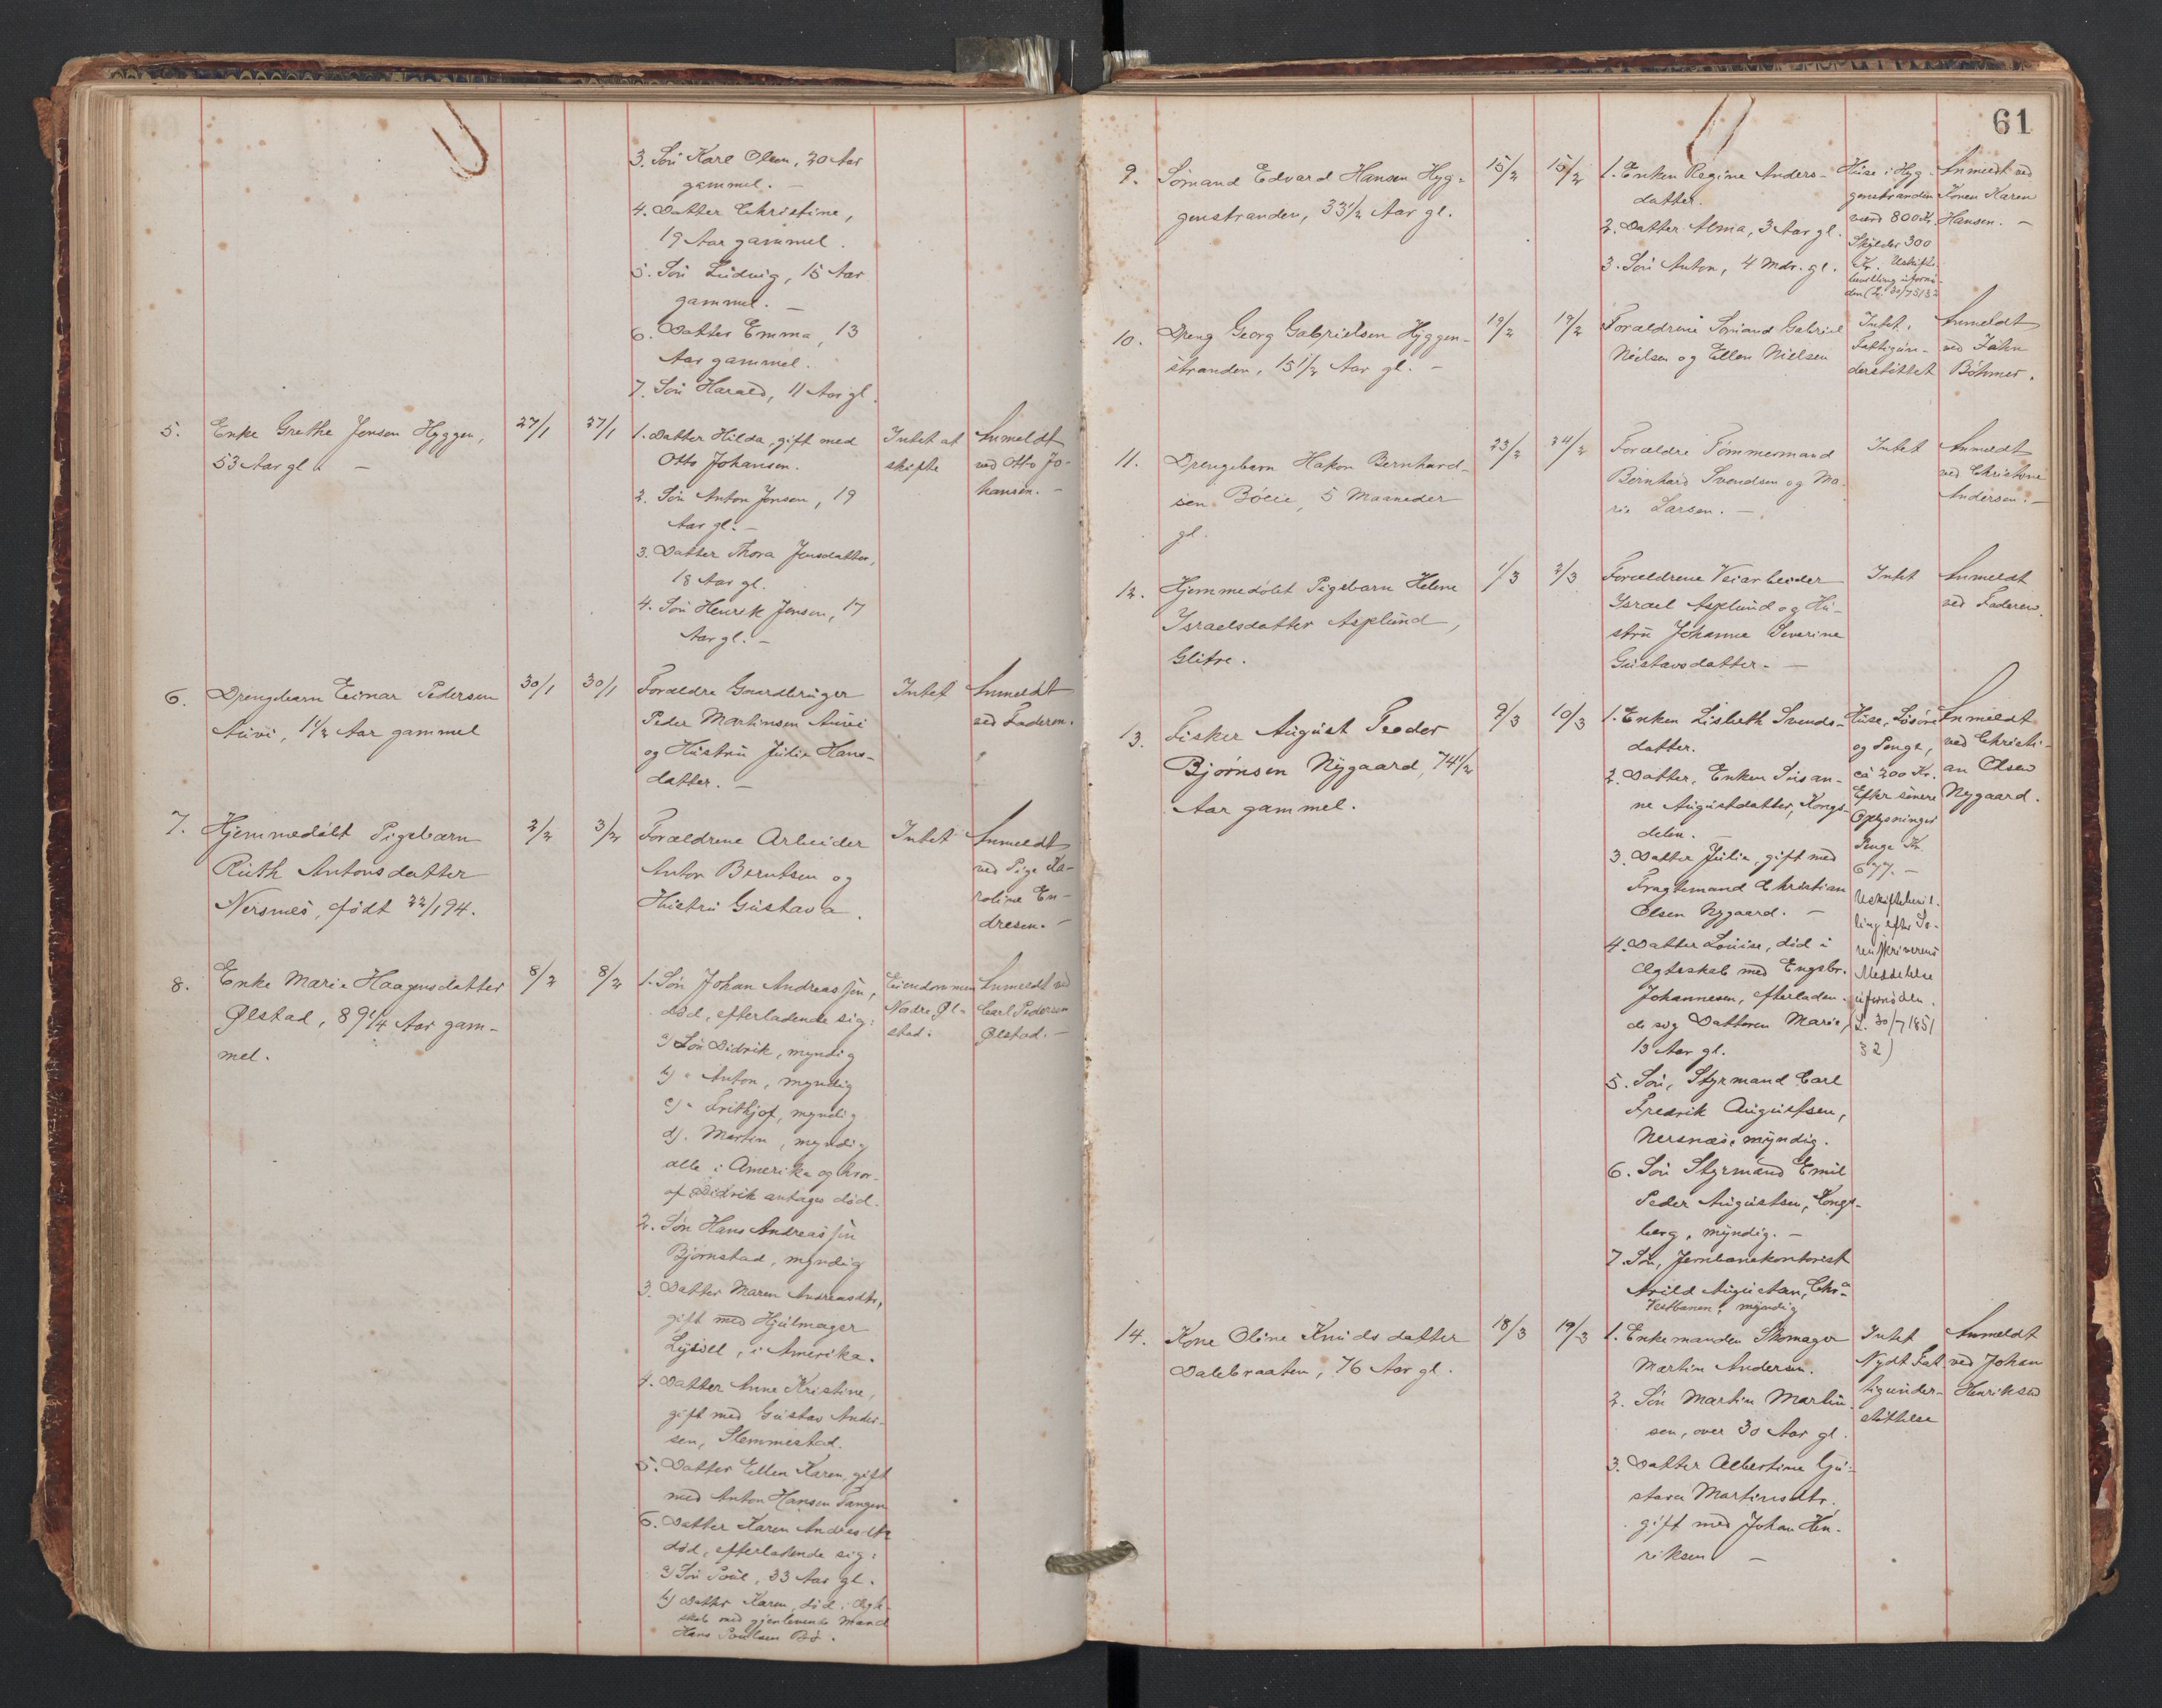 3. Søn Karl Olsen, 20 Aar
gammel. —
4. Datter Christine,
19 Aar gammel.
5. Søn Ludvig, 15 Aar
gammel. —
6. Datter Emma, 13
Aar gammel.
7. Søn Harald, 11 Aar gl.
5. Enke Grethe Jensen Hyggen,
53 Aar gl. —
27/1 27/1
1. Datter Hilda, gift med
Otto Johansen.
2. Søn Anton Jensen, 19
Aar gl. —
3. Datter Thora Jensdatter,
18 Aar gl.
4. Søn Henrik Jensen, 17
Aar gl. —
Intet at
skifte
Anmeldt
ved Otto Jo-
hansen. —
6. Drengebarn Einar Pedersen
Auvi, 1 1/2 Aar gammel
30/1 30/1
Forældre Gaardbruger
Peder Martinsen Auvi
og Hustru Julie Hans-
datter. —
Intet
Anmeldt
ved Faderen.
7. Hjemmedøbt Pigebarn
Ruth Antonsdatter
Nersnes, født 22/1 94.
2/2 3/2
Forældrene Arbeider
Anton Berntsen og
Hustru Gustava.
Intet
Anmeldt
ved Pige Ka-
roline En-
dresen. —
8. Enke Marie Haagensdatter
Ølstad, 89 1/4 Aar gam-
mel.
8/2 8/2
1. Søn Johan Andreassen,
død, efterladende sig:
a) Søn Didrik, myndig
b) " Anton, myndig
c) " Frithjof, myndig
d) " Martin, myndig
alle i Amerika og hvor-
af Didrik antages død.
2. Søn Hans Andreassen
Bjørnstad, myndig
3. Datter Maren Andreasdtr,
gift med Hjulmager
i Amerika.
4. Datter Anne Kristine,
gift med Gustav Ander-
sen, Slemmestad.
5. Datter Ellen Karen, gift
med Anton Hansen Tangen
6. Datter Karen Andreasdtr
død, efterladende sig:
a) Søn Poul, 33 Aar gl.
b) Datter Karen, død i Ægte-
skab med gjenlevende Mand
Hans Poulsen Bø.
Eiendommen
Nedre Øl-
stad.
Anmeldt ved
Carl Pedersen
Ølstad. —
61
9. Sømand Edvard Hansen Hyg-
genstranden, 33 1/2 Aar gl.
15/2 15/2
1. Enken Regine Anders-
datter.
2. Datter Alma, 3 Aar gl.
3. Søn Anton, 4 Mdr. gl.
Huse i Hyg-
genstranden
værd 800 Kr.
Skylder 300
Kr. Uskifte-
bevilling ufornø-
den (L. 30/7 51 § 2
Anmeldt ved
Konen Karen
Hansen. —
10. Dreng Georg Gabrielsen Hyggen-
stranden, 15 1/2 Aar gl. —
19/2 19/2
Forældrene Sømand Gabriel
Nielsen og Ellen Nielsen
Intet.
Fattigun-
derstøttet
Anmeldt
ved John
Bøhmer.
11. Drengebarn Hakon Bernhard-
sen Bölie, 5 Maaneder
gl.
23/2 24/2
Forældre Tømmermand
Bernhard Svendsen og Ma-
rie Larsen. —
Intet
Anmeldt
ved Christine
Andersen. —
12. Hjemmedøbt Pigebarn Helene
Israelsdatter Asplund,
Glitre.
1/3 2/3
Forældrene Veiarbeider
Israel Asplund og Hu-
stru Johanne Severine
Gustavsdatter. —
Intet
Anmeldt
ved Faderen.
13. Fisker August Peder
Bjørnsen Nygaard, 74 1/2
Aar gammel.
9/3 10/3
1. Enken Lisbeth Svends-
datter.
2. Datter, Enken Susan-
ne Augustdatter, Kongs-
delen. —
3. Datter Julie, gift med
Fragtemand Christian
Olsen Nygaard. —
4. Datter Louise, død i
Ægteskab med Engebr.
Johannesen, efterladen-
de sig Datteren Marie,
13 Aar gl.
5. Søn, Styrmand Carl
Fredrik Augustsen,
Nersnæs, myndig.
6. Søn Styrmand Emil
Peder Augustsen, Kongs-
berg, myndig. —
7. Søn, Jernbanekontorist
Arild Augustsen, Chra
Vestbanen, myndig
Huse, Løsøre
og Penge,
ca 200 Kr.
Efter senere
Oplysninger
Penge Kr.
677. —
Uskiftebevil-
ling efter So-
renskriverens
Meddelelse
ufornøden.
(L. 30/7 1851
§ 2)
Anmeldt
ved Christi-
an Olsen
Nygaard.
14. Kone Oline Knudsdatter
Dalebraaten, 76 Aar gl.
18/3 19/3
1. Enkemanden Skomager
Martin Andersen.
2. Søn Martin Martin-
sen, over 30 Aar gl.
3. Datter Albertine Gu-
stava Martinsdtr.
gift med Johan Hen-
riksen —
Intet
Nydt Fat-
tigunder-
støttelse
Anmeldt
ved Johan
Henriksen